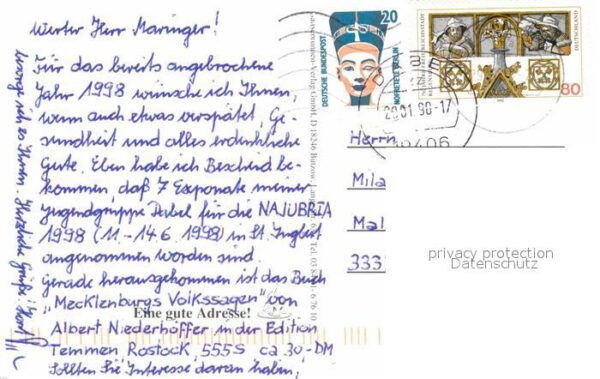 Werter Herr Maringer!
Für das bereits angebrochene
Jahr 1998 wünsche ich Ihnen,
wenn auch etwas verspätet, Ge-
sundheit und alles erdenkliche
Gute. Eben habe ich Bescheid be-
kommen, daß 7 Exponate meiner
Jugendgruppe Berbel für die NAJUBRIA
1998 (11.-14.6 1998) in St. Ingbert
angenommen worden sind.
Gerade herausgekommen ist das Buch
"Mecklenburgs Volkssagen" von
Albert Niederhöffer in der Edition
Temmen Rostock, 555 S ca 30,-DM
Sollten Sie Interesse daran haben,
besorge ich es Ihnen. Herzliche Grüße!
Eine gute Adresse!
Verlag GmbH, D 18246 Bützow
DEUTSCHE BUNDESPOST
20
NOFRETETE BERLIN
DEUTSCHLAND
80
Herrn
Mila
Mal
333
privacy protection
Datenschutz